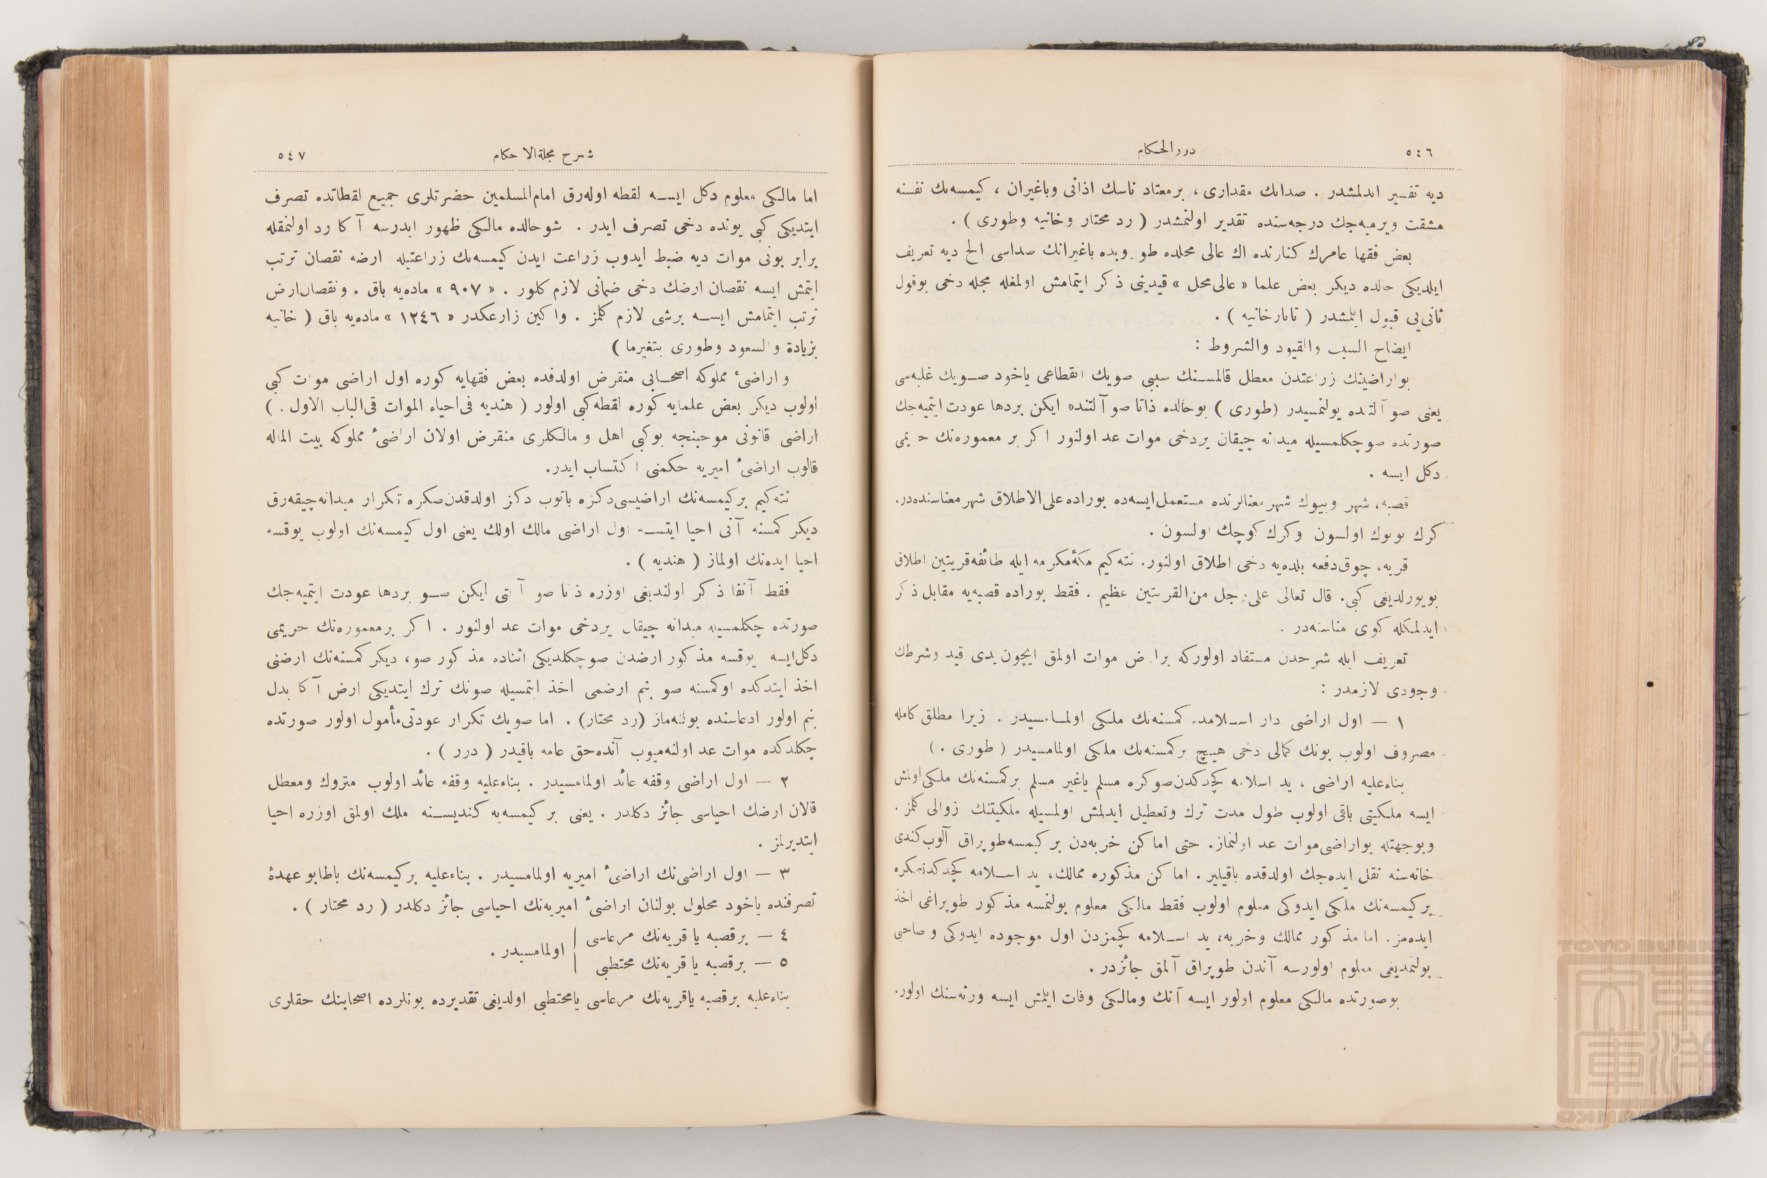 ٥٤٦
درر الحكام
ديه تفسير ايدلمشدر . صدانك مقدارى ، بر معتاد ناسك اذانى و باغيران ، كيمسه‌نك نفسنه
مشقت ويرميه‌جك درجه‌سنده تقدير اولنمشدر ( رد محتار و خانيه و طورى ) .
بعض فقها عامرك كنارنده اك عالى محلده طوروبده باغيرانك صداسى الخ ديه تعريف
ايلديكى حالده ديكر بعض علما « عالى محل » قيدينى ذكر ايتمامش اولمغله مجله دخى بوقول
ثانى‌يى قبول ايلمشدر ( تاتارخانيه ) .
ايضاح السبب والقيود والشروط :
بو اراضينك زراعتدن معطل قالمسنك سببى صويك انقطاعى ياخود صويك غلبه‌سى
يعنى صو آلتنده بولنمسيدر (طورى ) بوحالده ذاتا صو آلتنده ايكن بردها عودت ايتميه‌جك
صورتده صو چكلمسيله ميدانه چيقان ير دخى موات عد اولنور اكر بر معموره‌نك حريمى
دكل ايسه .
قصبه، شهر و بيوك شهر معنالرنده مستعمل ايسه‌ده بوراده على الاطلاق شهر معناسنده‌در.
كرك بويوك اولسون و كرك كوچك اولسون .
قريه، چوق دفعه بلده‌يه دخى اطلاق اولنور. نته‌كيم مكهٔ مكرمه ايله طائفه قريتين اطلاق
بويورلديغى كبى. قال تعالى على رجل من القريتين عظيم . فقط بوراده قصبه‌يه مقابل ذكر
ايدلمكله كوى مناسنه‌در .
تعريف ايله شرحدن مستفاد اولوركه بر ارض موات اولمق ايچون يدى قيد و شرطك
وجودى لازمدر :
١ — اول اراضى دار اسلامده كمسنه‌نك ملكى اولمامسيدر . زيرا مطلق كامله
مصروف اولوب بونك كمالى دخى هيچ بركمسنه‌نك ملكى اولمامسيدر ( طورى . )
بناءعليه اراضى ، يد اسلامه كچدكدن صوكره مسلم يا غير مسلم بركمسنه‌نك ملكى اولمش
ايسه ملكيتى باقى اولوب طول مدت ترك و تعطيل ايدلمش اولمسيله ملكيتنك زوالى كلمز .
و بوجهتله بو اراضى موات عد اولنماز. حتى اماكن خربه‌دن بر كيمسه طوپراق آلوب كندى
خانه‌سنه نقل ايده‌جك اولدقده باقيلير . اماكن مذكوره ممالك، يد اسلامه كچدكدنصكره
بركيمسه‌نك ملكى ايدوكى معلوم اولوب فقط مالكى معلوم بولنمسه مذكور طوپراغى اخذ
ايده‌مز. اما مذكور ممالك و خربه، يد اسلامه كچمزدن اول موجوده ايدوكى و صاحبى
بولنمديغى معلوم اولورسه آندن طوپراق آلمق جائزدر .
بو صورتده مالكى معلوم اولور ايسه آنك و مالكى وفات ايلمش ايسه ورثه‌سنك اولور.
شرح مجلة الاحكام
٥٤٧
اما مالكى معلوم دكل ايسه لقطه اوله‌رق امام المسلمين حضرتلرى جميع لقطاتده تصرف
ايتديكى كبى بونده دخى تصرف ايدر . شو حالده مالكى ظهور ايدرسه آكا رد اولنمقله
برابر بونى موات ديه ضبط ايدوب زراعت ايدن كيمسه‌نك زراعتيله ارضه نقصان ترتب
ايتمش ايسه نقصان ارضك دخى ضمانى لازم كلور . « ٩٠٧ » ماده‌يه باق . و نقصان ارض
ترتب ايتمامش ايسه برشى لازم كلمز . و اكين زارعكدر « ١٢٤٦ » ماده‌يه باق ( خانيه
بزيادة والسعود و طورى بتغيرما )
و اراضئ مملوكه اصحابى منقرض اولدقده بعض فقهايه كوره اول اراضى موات كبى
اولوب ديكر بعض علمايه كوره لقطه كبى اولور ( هنديه فى احياء الموات فى الباب الاول . )
اراضى قانونى موجبنجه بوكبى اهل و مالكلرى منقرض اولان اراضئ مملوكه بيت الماله
قالوب اراضئ اميريه حكمنى اكتساب ايدر.
نته‌كيم بركيمسه‌نك اراضيسى دكزه باتوب دكز اولدقدن صكره تكرار ميدانه چيقه‌رق
ديكر كمسنه آنى احيا ايتسه اول اراضى مالك اولك يعنى اول كيمسه‌نك اولوب يوقسه
احيا ايده‌نك اولماز ( هنديه ) .
فقط آنفا ذكر اولنديغى اوزره ذاتا صو آلتى ايكن صو بردها عودت ايتميه‌جك
صورتده چكلمسيله ميدانه چيقان ير دخى موات عد اولنور . اكر بر معموره‌نك حريمى
دكل ايسه يوقسه مذكور ارضدن صو چكلديكى اثناده مذكور صو، ديكر كمسنه‌نك ارضنى
اخذ ايتدكده او كمسنه صو بنم ارضمى اخذ ايتمسيله صونك ترك ايتديكى ارض آكا بدل
بنم اولور ادعاسنده بولنه‌ماز (رد محتار) . اما صويك تكرار عودتى مأمول اولور صورتده
چكلدكده موات عد اولنه‌ميوب آنده حق عامه باقيدر ( درر ) .
٢ — اول اراضى وقفه عائد اولمامسيدر . بناءعليه وقفه عائد اولوب متروك و معطل
قالان ارضك احياسى جائز دكلدر . يعنى بر كيمسه‌يه كنديسنه ملك اولمق اوزره احيا
ايتديرلمز .
٣ — اول اراضى‌نك اراضئ اميريه اولمامسيدر . بناءعليه بركيمسه‌نك باطابو عهدهٔ
تصرفنده ياخود محلول بولنان اراضئ اميريه‌نك احياسى جائز دكلدر ( رد محتار ) .
٤ — برقصبه يا قريه‌نك مرعاسى
٥ — برقصبه يا قريه‌نك محتطبى
اولمامسيدر .
بناءعليه برقصبه ياقريه‌نك مرعاسى يا محتطبى اولديغى تقديرده بونلرده اصحابنك حقلرى
TOYO BUNKO
東洋文庫